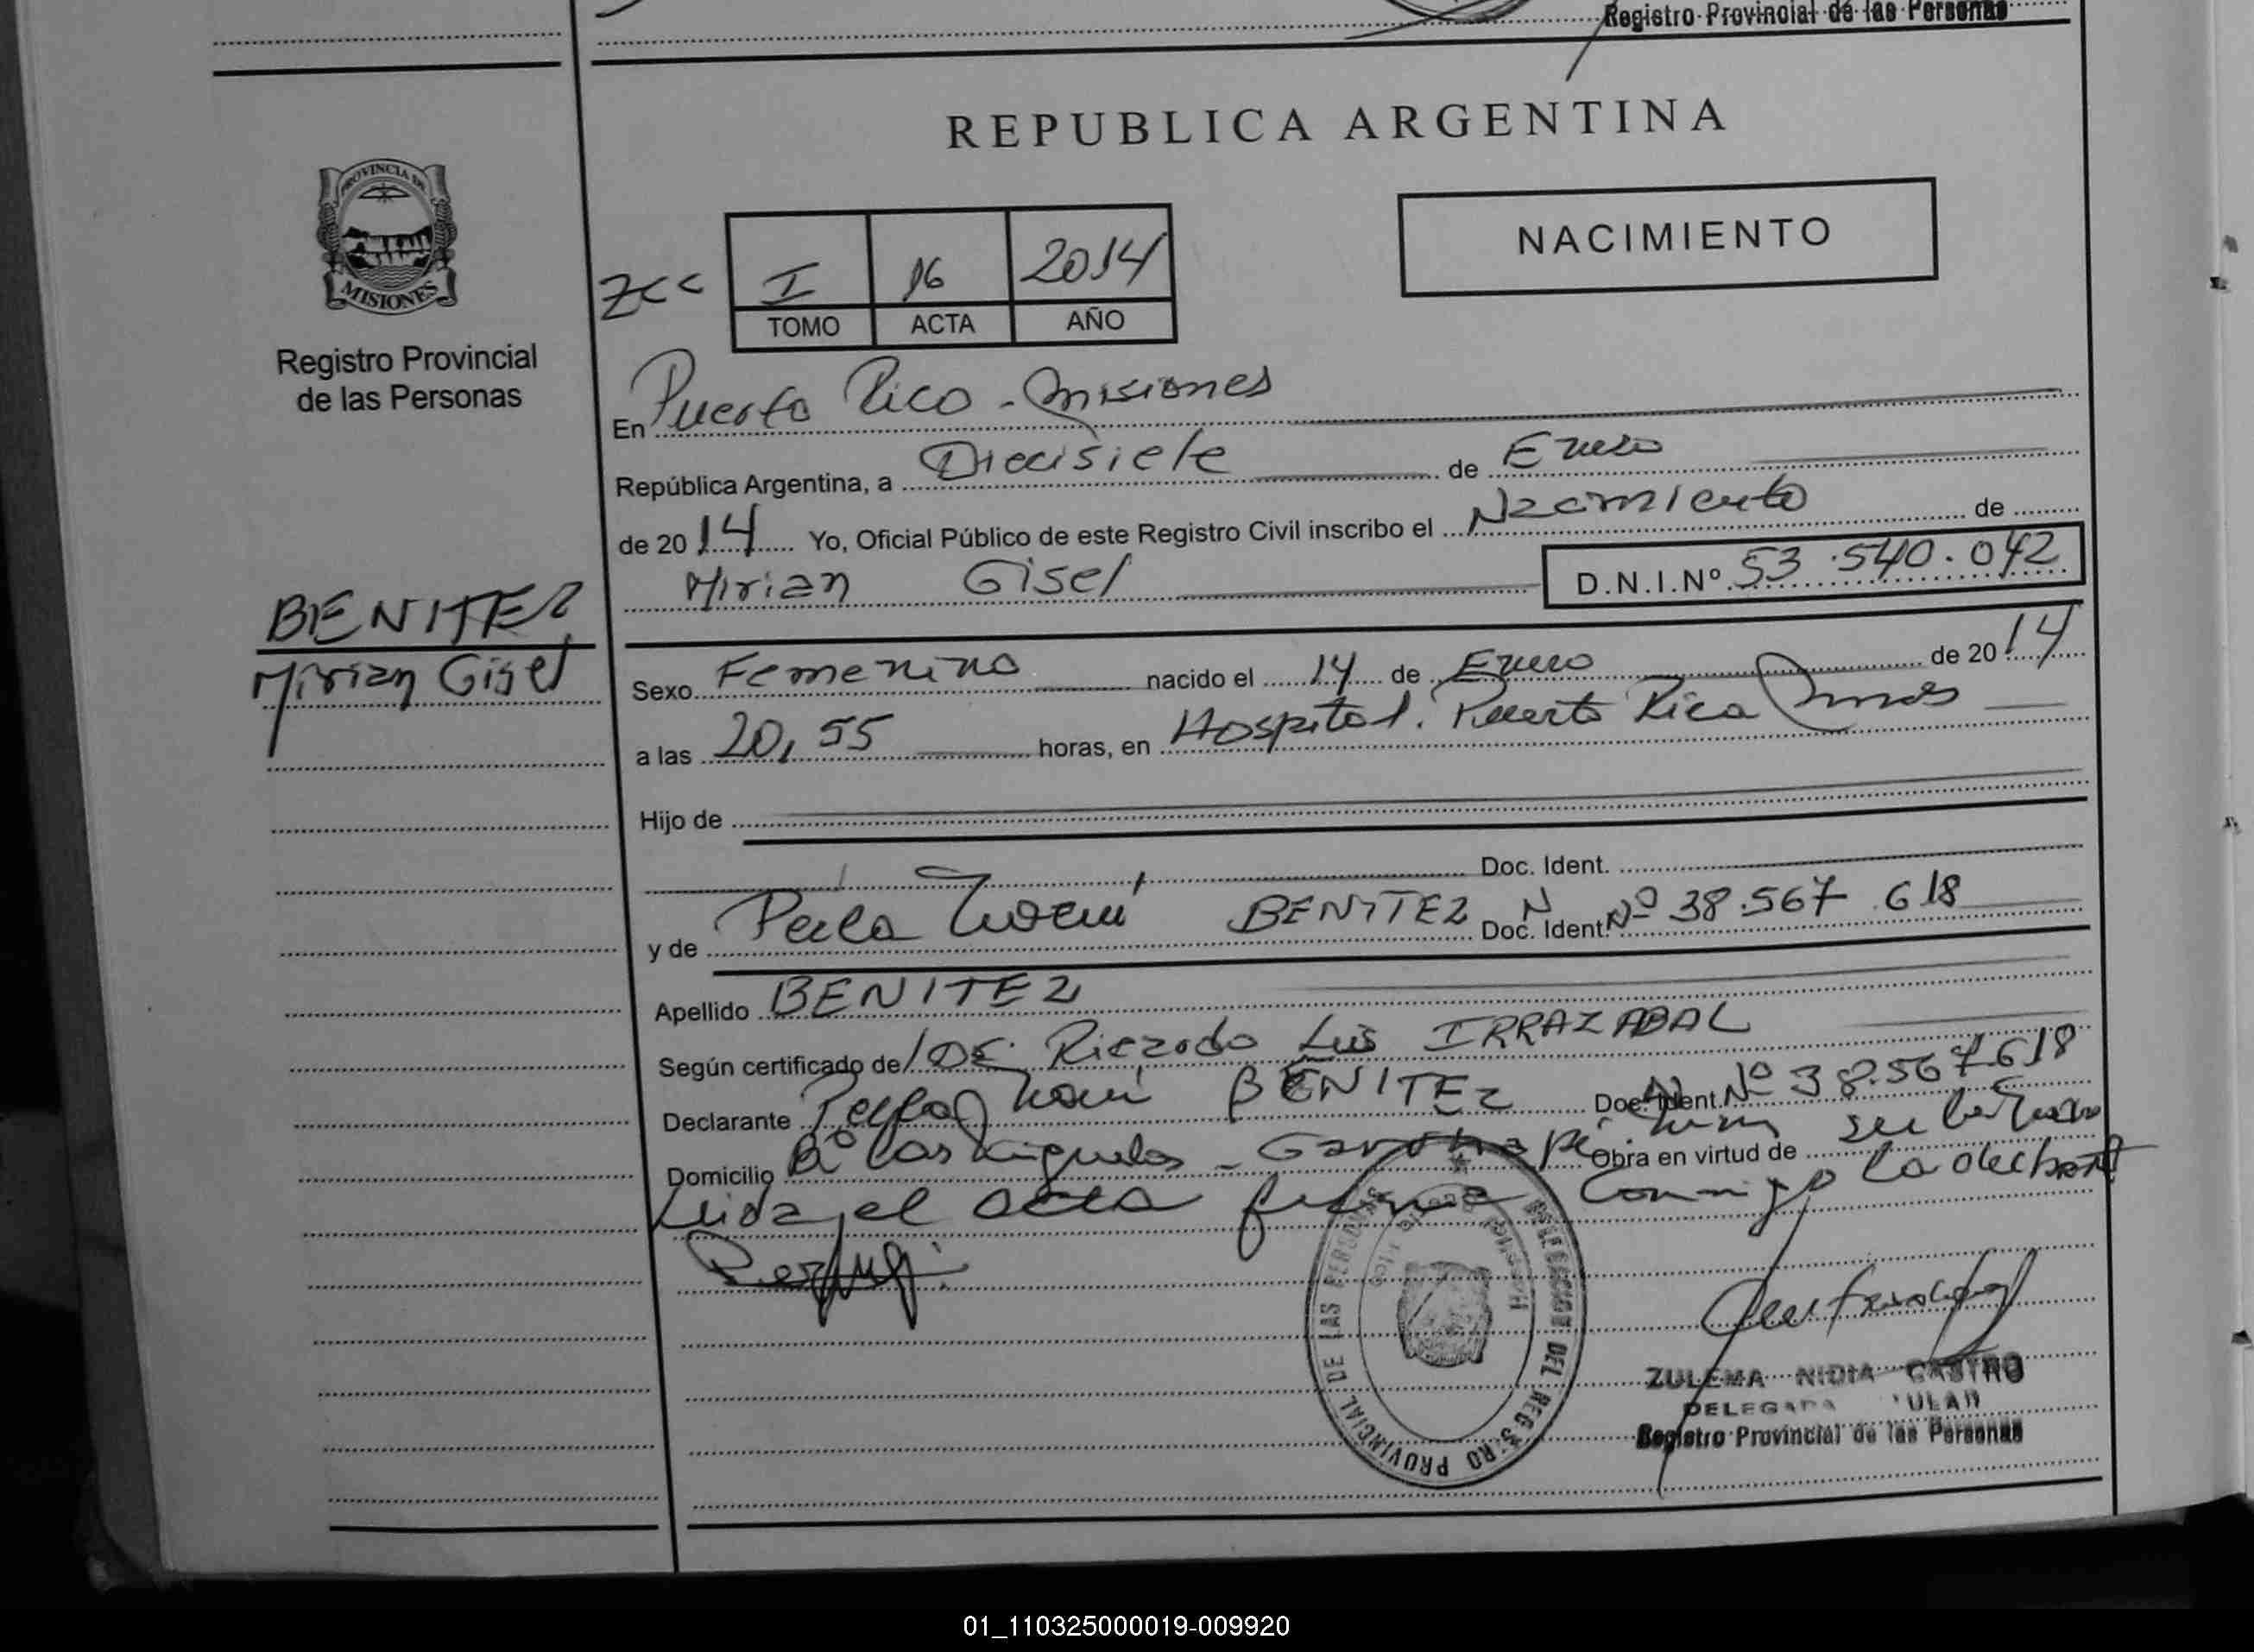 Registro Provincial de las Personas
REPUBLICA ARGENTINA
PROVINCIA DE
MISIONES
Registro Provincial
de las Personas
NACIMIENTO
I 16 2014
TOMO ACTA AÑO
En Puerto Rico - Misiones
República Argentina, a Diecisiete de Enero
de 2014 Yo, Oficial Público de este Registro Civil inscribo el Nacimiento de
Mirian Gisel D.N.I.Nº 53.540.042
BENITEZ
Mirian Gisel
Sexo Femenino nacido el 14 de Enero de 2014
a las 20,55 horas, en Hospital. Puerto Rico Mnes
Hijo de
Doc. Ident.
y de Perla Noemí BENITEZ Doc. Ident. Nº 38.567.618
Apellido BENITEZ
Según certificado de Ricardo Luis IRRAZABAL
Declarante Perla Noemí BENITEZ Doc. Ident. Nº 38.567.618
Domicilio Bº Los - Garuhapé. Obra en virtud de
Leida el acta firma conmigo la declarante
DELEGACION DEL REGISTRO PROVINCIAL DE LAS PERSONAS
Hospital Puerto Rico
ZULEMA NIDIA CASTRO
DELEGADA
Registro Provincial de las Personas
01_110325000019-009920